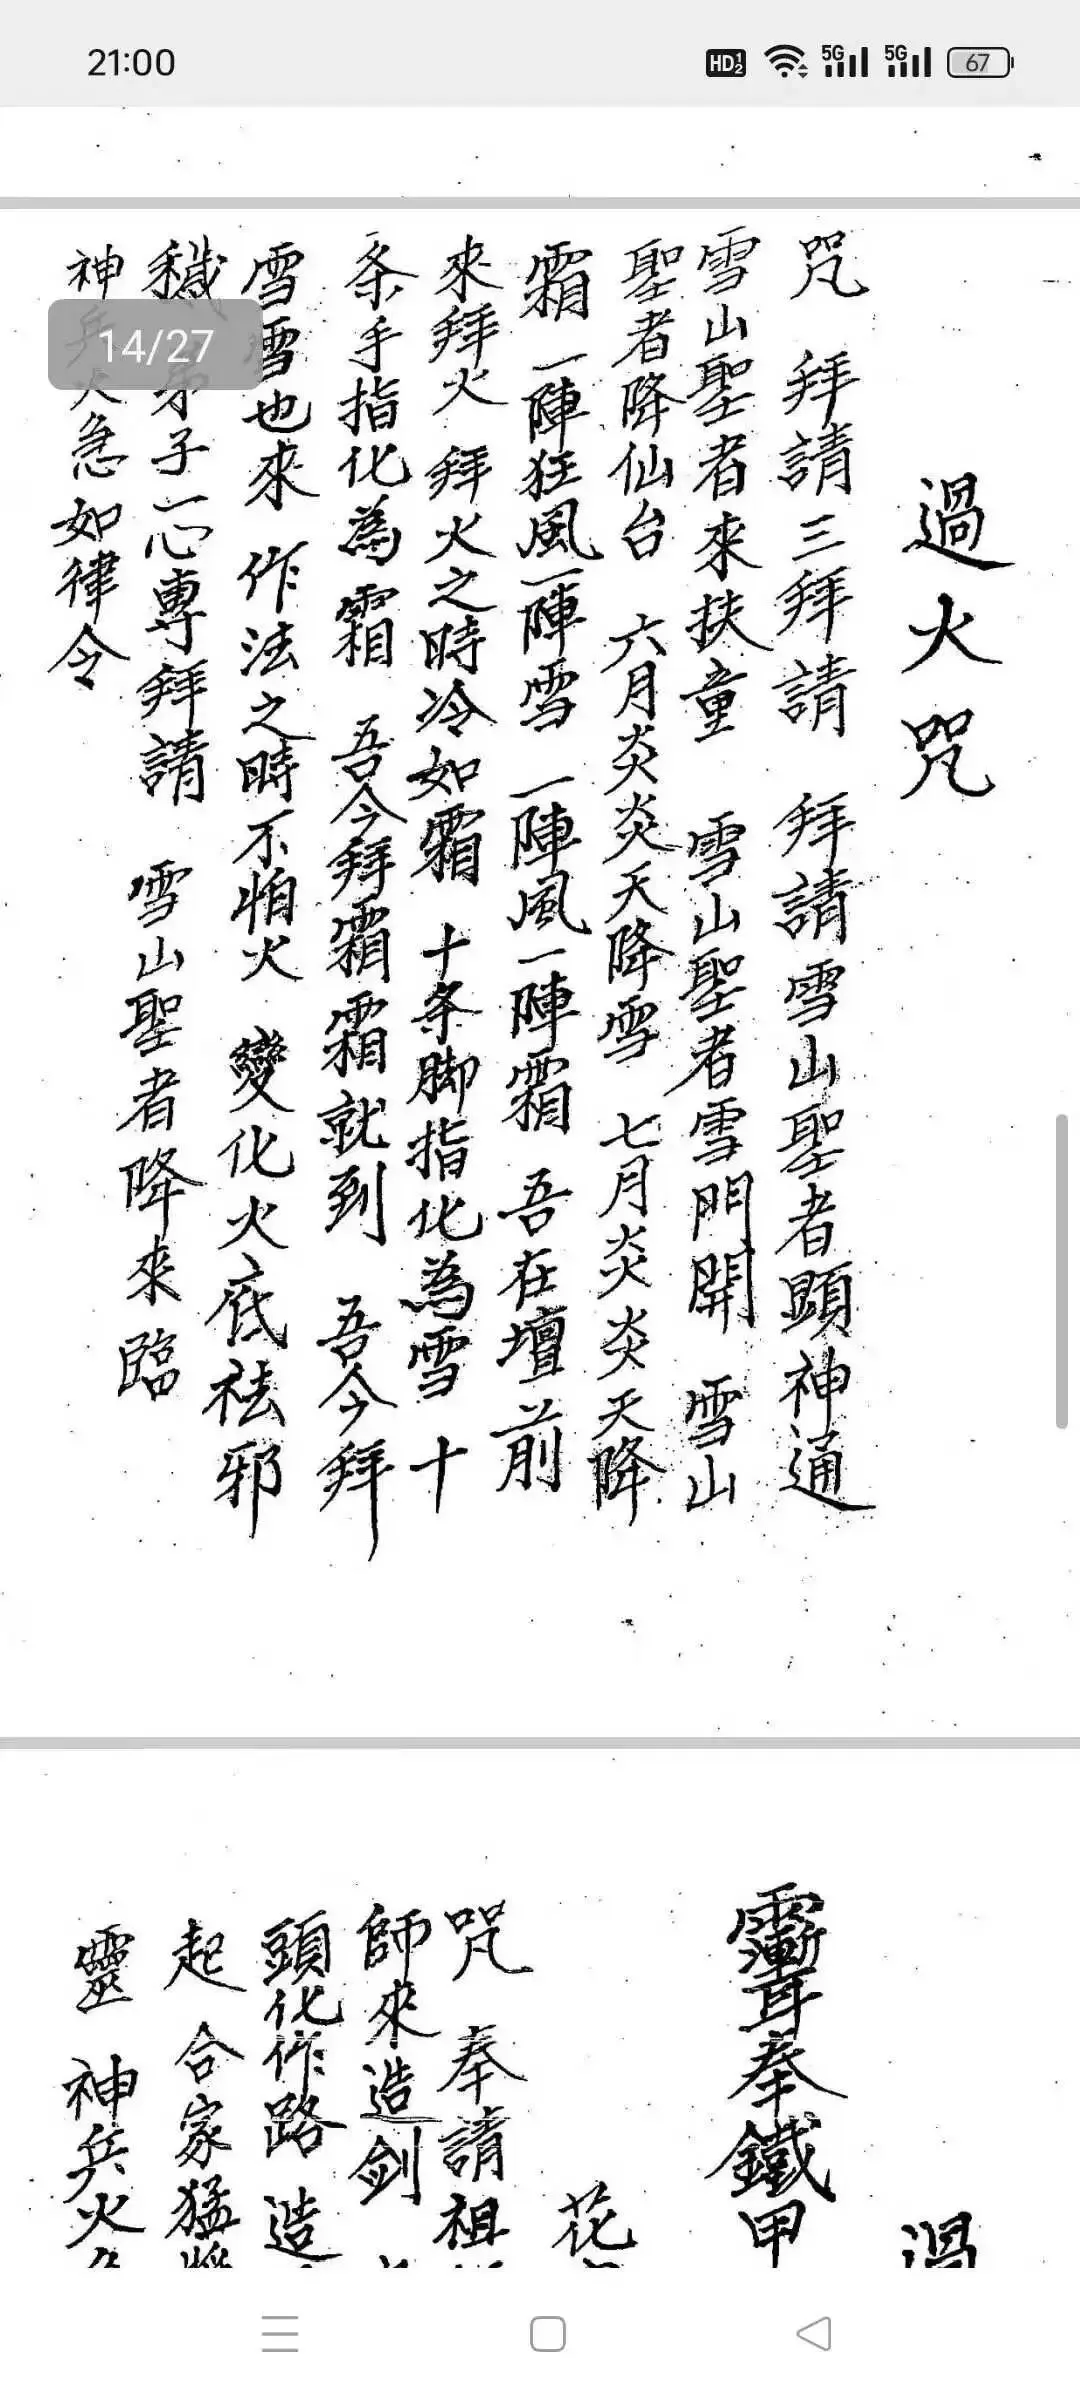 21:00
HD 1 2 5G 5G 67
14/27
過火咒
咒 拜請三拜請 拜請雪山聖者顕神通
雪山聖者來扶童 雪山聖者雪門開 雪山
聖者降仙台 六月炎炎天降雪 七月炎炎天降
霜 一陣狂風一陣雪 一陣風一陣霜 吾在壇前
來拜火 拜火之時冷如霜 十条脚指化為雪 十
条手指化為霜 吾今拜霜霜就到 吾今拜
雪雪也來 作法之時不怕火 變化火底祛邪
穢 弟子一心專拜請 雪山聖者降來臨
神兵火急如律令
過
奉鐵甲
花
咒 奉請祖
師來造剑
頭化作路 造
起 合家猛
靈 神兵火